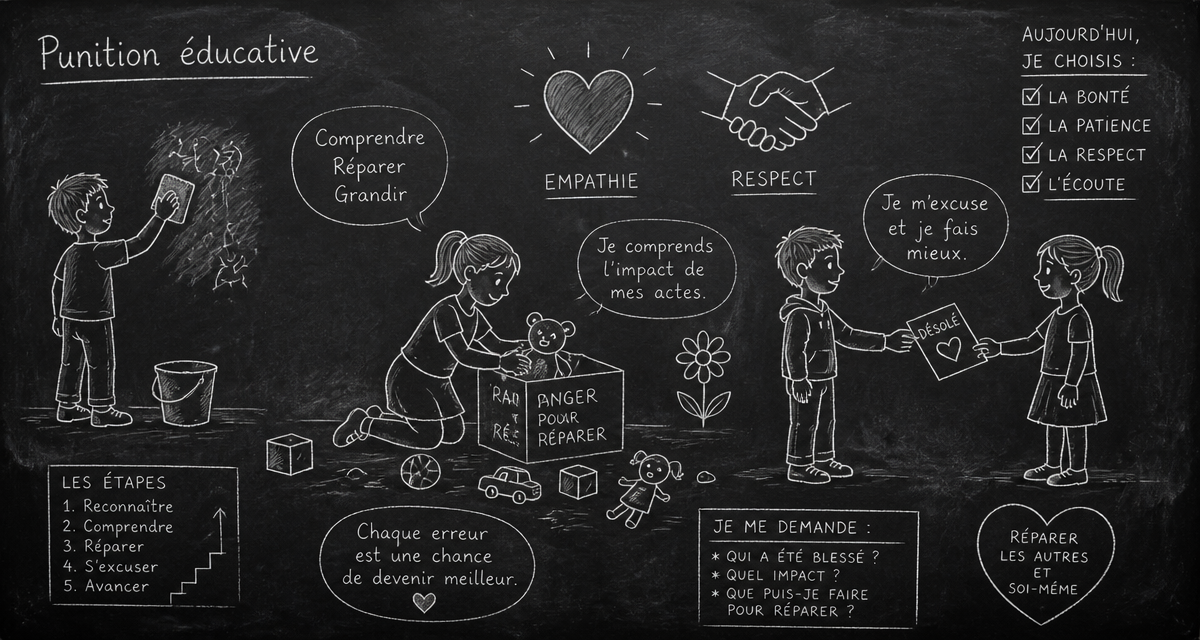 Punition éducative
Comprendre
Réparer
Grandir
EMPATHIE
RESPECT
AUJOURD'HUI,
JE CHOISIS :
LA BONTÉ
LA PATIENCE
LA RESPECT
L'ÉCOUTE
Je comprends
l'impact de
mes actes.
Je m'excuse
et je fais
mieux.
DÉSOLÉ
ANGER
POUR
RÉPARER
LES ÉTAPES
1. Reconnaître
2. Comprendre
3. Réparer
4. S'excuser
5. Avancer
Chaque erreur
est une chance
de devenir meilleur.
JE ME DEMANDE :
* QUI A ÉTÉ BLESSÉ ?
* QUEL IMPACT ?
* QUE PUIS-JE FAIRE
POUR RÉPARER ?
RÉPARER
LES AUTRES
ET
SOI-MÉME